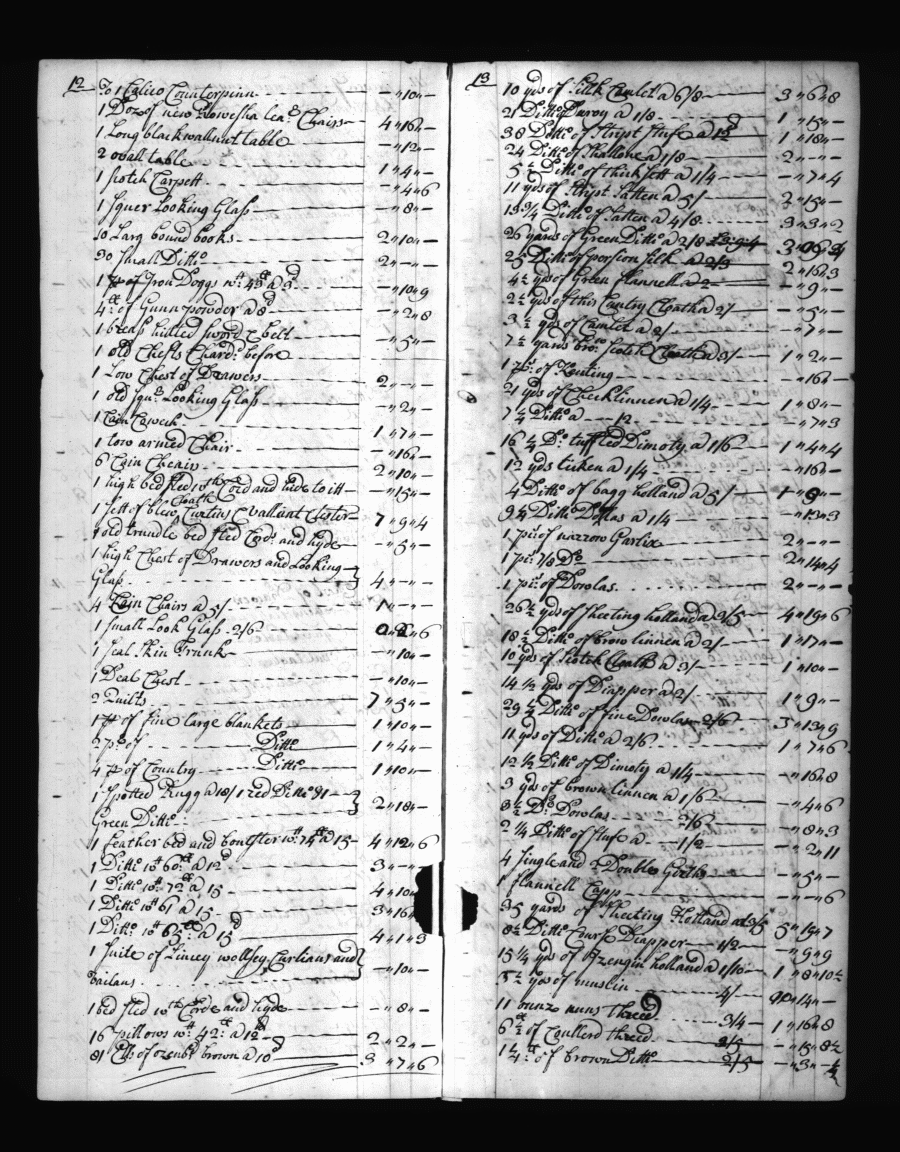 12
To 1 Calico Counterpinn - "10 -
1 Doz of new Rowesha lea.d Chairs 4 "16 -
1 Long black wallnutt table - "12 -
2 ovall table 1 "4 -
1 Scotch Carpett - "4 "6
1 Squer Looking Glass - "8 -
10 Larg bound books 2 "10 -
30 Small Ditto 2 " - -
1 pr of Iron Doggs wt: 43 a 3d - "10 "9
4 of Gunn powder a 8d - "2 "8
1 brass hilted sword & belt - "5 -
1 old Chests Chard: before
1 Low Chest of Drawers 2 " - -
1 old Squr Looking Glass - "2 -
1 Cain Cowch 1 "7 -
1 low armed Chair - "16 -
6 Cain Cheair 2 "10 -
1 high bed sted wth Cord and hide to itt - "15 -
1 Sett of blew Cloath Curtins & vallant Tester 7 "9 "4
1 old trundle bed sted Cord and hyde - "5 -
1 high Chest of Drawers and Looking
Glass 4 " - -
4 Cain Chairs a 5/ 1 " - -
1 Small Look Glass 2/6 0 "2 "6
1 Seal Skin Trunk - "10 -
1 Deal Chest - "10 -
2 Quilts 7 "5 -
1 pr of fine large blankets 1 "10 -
2 pr of Ditto 1 "4 -
4 pr of Country Ditto 1 "10 -
1 Spotted Rugg a 18/ 1 red Ditto 1
Green Ditto 2 "18 -
1 feather bed and boulster wt: 74 a 15 4 "12 "6
1 Ditto wt 60 a 12d 3 " - -
1 Ditto wt: 72 a 15 4 "10
1 Ditto wt 61 a 15 3 "16
1 Ditto wt 65 a 15d 4 "1 "3
1 Suite of Lincey wollsey Curtians and
vailans - "10 -
1 bed sted wth Corde and hyde - "8 -
16 pillows wt: 42 a 12d 2 "2 -
81 Ells of ozenbr brown a 10d 3 "7 "6
13
10 yds of Silk Camlet a 6/8 3 "6 "8
21 Ditto Duroy a 1/8 1 "15 -
38 Ditto of Stript Stufe a 12d 1 "18 -
24 Ditto of Shallone a 1/8 2 " - -
5 1/2 Ditto of thick sett a 1/4 - "7 "4
11 yds of Stript Satten a 5/ 2 "15 -
13 3/4 Ditto of Satten a 4/8 3 "3 "2
26 yards of Green Ditto a 2/8
25 Ditto of persion silk a 2/3 2 "16 "3
4 1/2 yds of Green flannell a 2 - "9 -
2 1/2 yds of this Cloath a 2/ - "5 -
3 1/2 yds of Camlet a 2/ - "7 -
7 1/2 yards brow Scotch Cloath a 3/ 1 "2 -
1 ps: of - "16 -
21 yds of Check linnen a 1/4 1 "8 -
7 1/4 Ditto a 12 - "7 "3
16 1/4 Do: tuffted Dimoty a 1/6 1 "4 "4
12 yds ticken a 1/4 - "16 -
4 Ditto of bagg holland a 5/ 1 - 0 -
9 3/4 Ditto Dowlas a 1/4 - "13 "3
1 pss of narrow Garlix 2 " - -
1 ps: 7/8 Do 2 "14 "4
1 ps: of Dowlas 2 " - -
26 1/2 yds of Sheeting holland a 3/5 4 "19 "6
18 1/2 Ditto of brow linnen a 2/ 1 "17 -
10 yds of Scotch Cloath a 3/ 1 "10 -
14 1/2 yds of Diapper a 2/ 1 "9 -
29 1/2 Ditto of fine Dowlas 2/6 3 "13 "9
11 yds of Ditto a 2/6 1 "7 "6
12 1/2 Ditto of Dimoty a 1/4 - "16 "8
3 yds of brown linnen a 1/6 - "4 "6
3 1/2 Do Dowlas 2/6 - "8 "3
2 1/4 Ditto of stufe a 1/2 - "2 "11
4 Single and 2 Double Girths - "5 -
1 flannell Capp - " - "6
35 yards of Sheeting Holland at 3/5 5 "19 "7
8 1/2 Ditto Course Diapper 1/2 - "9 "9
15 1/4 yds of holland a 1/10 1 "8 "10 1/2
3 1/2 yds of muslin 4/ "14 -
11 ounz nuns threed 3/4 1 "16 "8
6 1/2 of Coullerd threed 2/5 - "15 "8 1/2
1 1/4 of brown Ditto 2/5 - "3 -